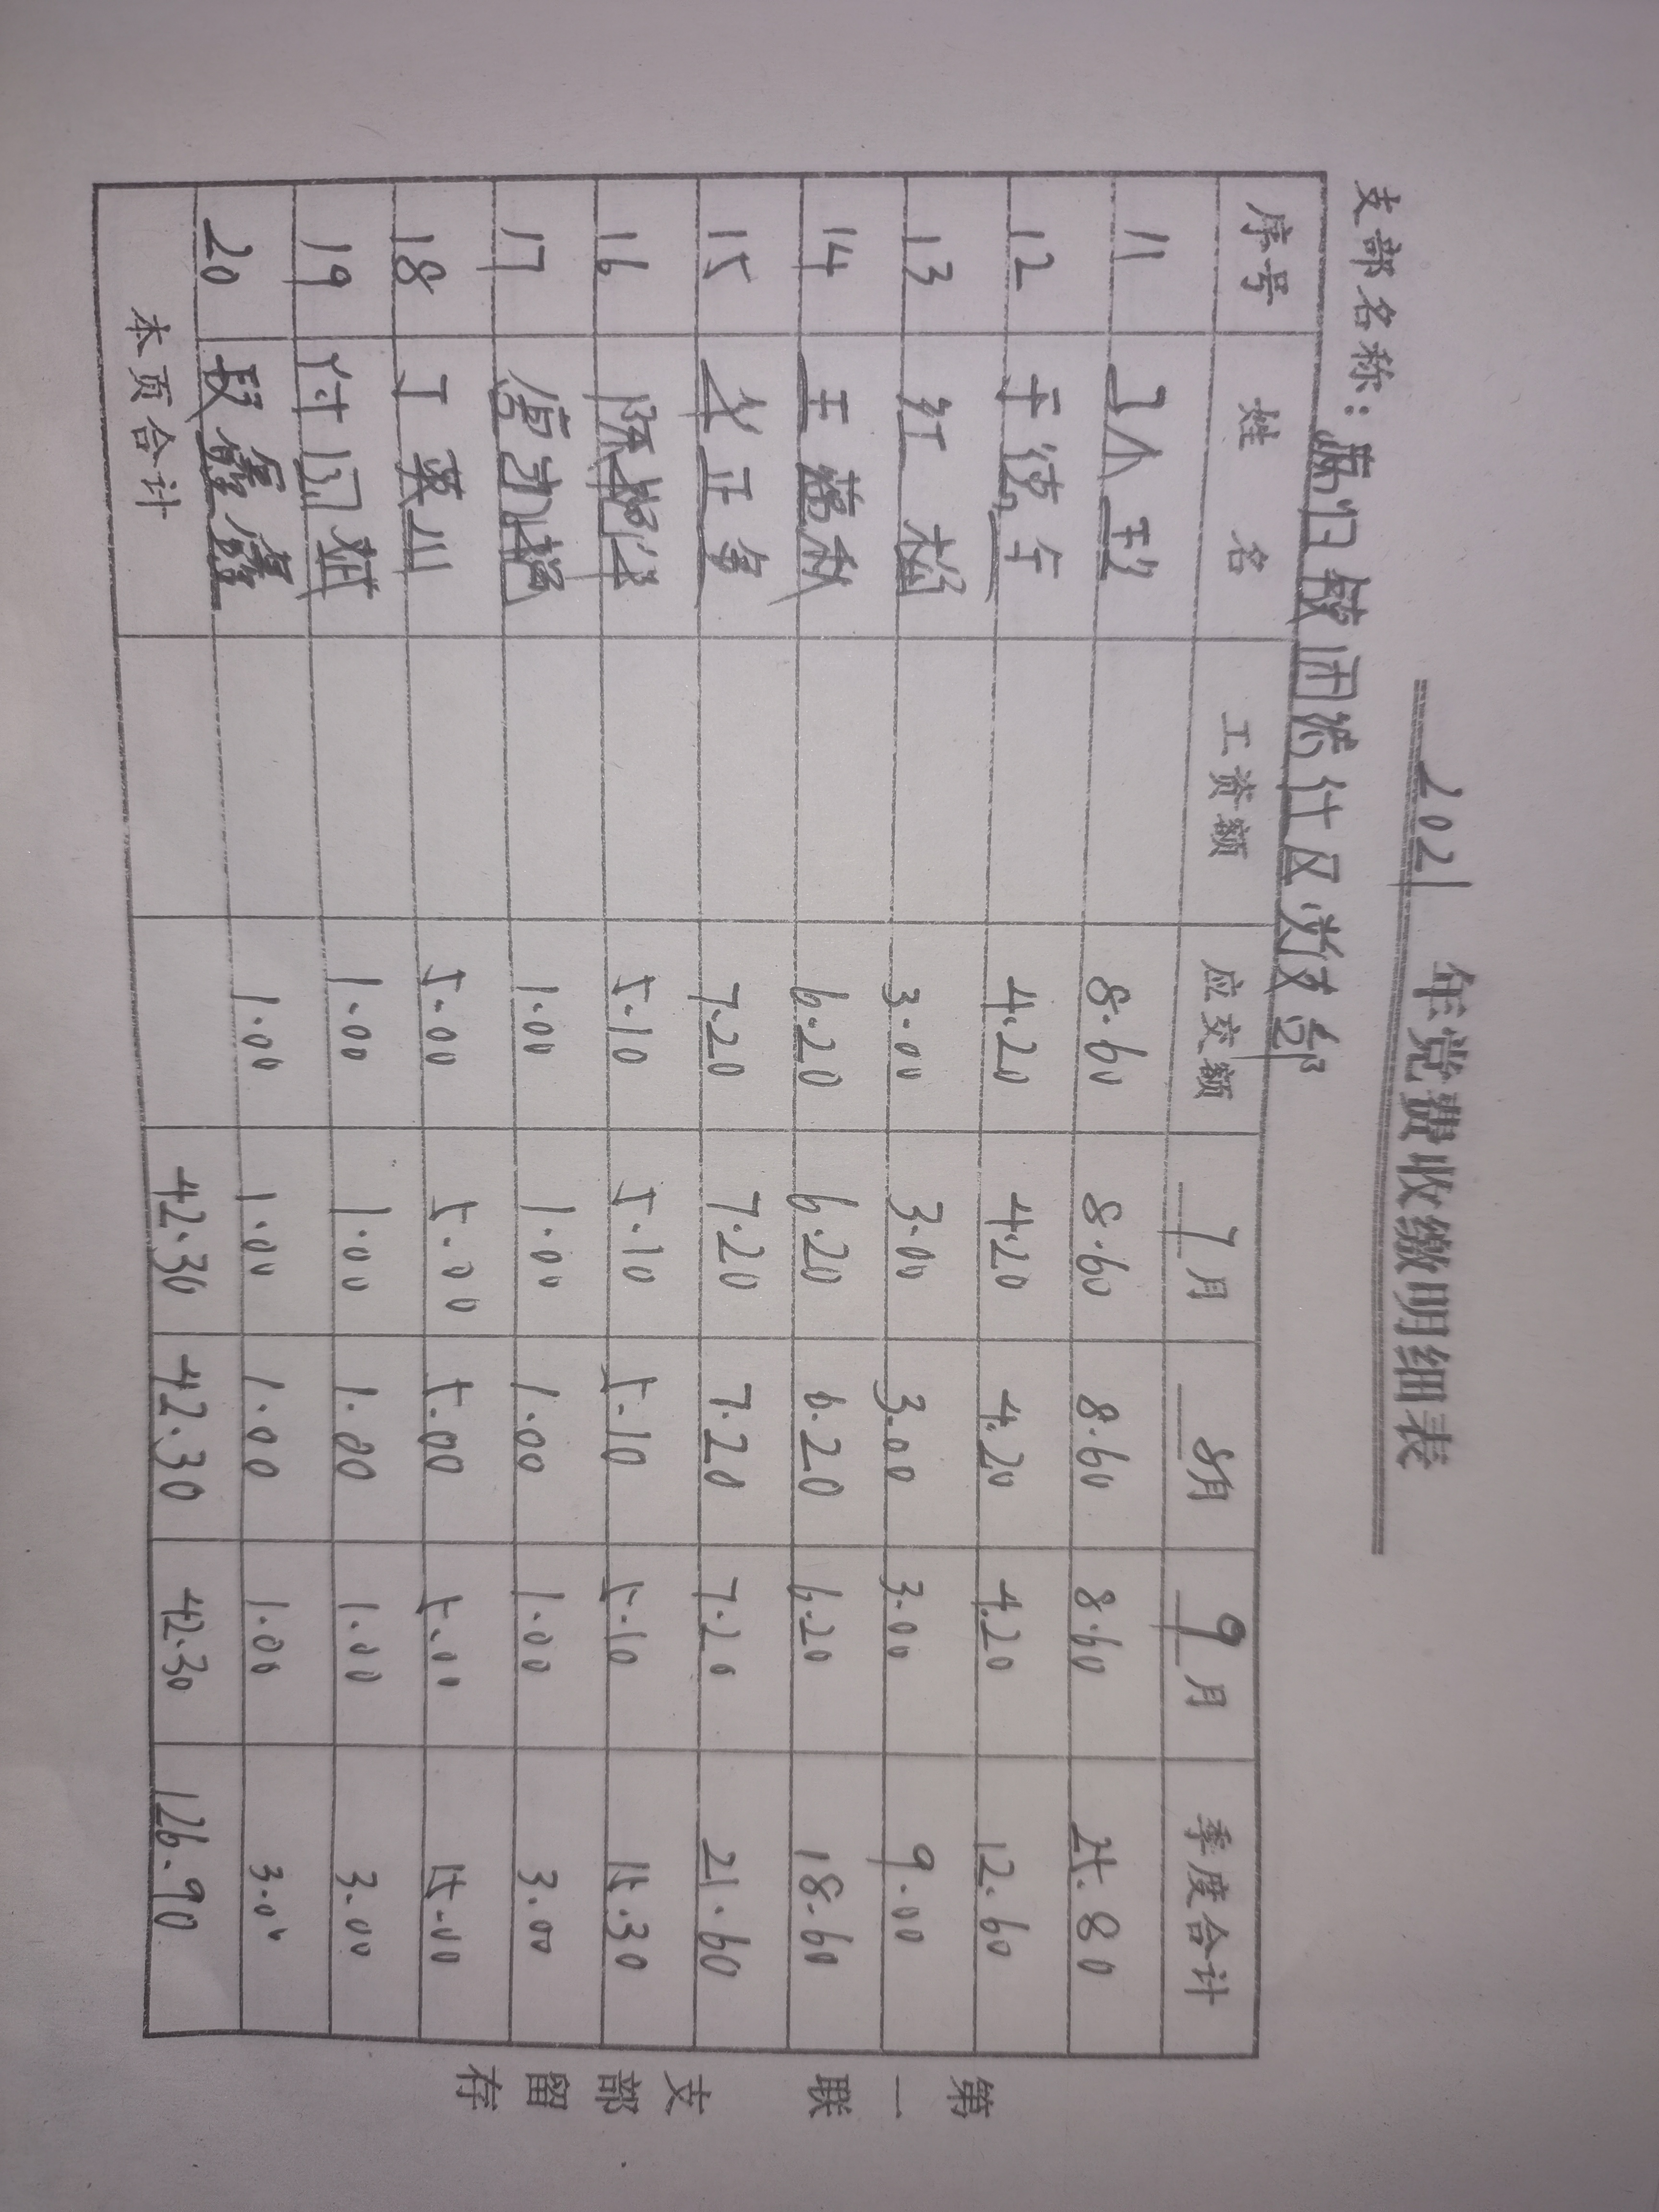 2021 年党费收缴明细表
支部名称: 社区党支部
序号 姓名 工资额 应交额 7月 8月 9月 季度合计
11 8.60 8.60 8.60 8.60 25.80
12 于德年 4.20 4.20 4.20 4.20 12.60
13 红梅 3.00 3.00 3.00 3.00 9.00
14 王 6.20 6.20 6.20 6.20 18.60
15 正军 7.20 7.20 7.20 7.20 21.60
16 陈 5.10 5.10 5.10 5.10 15.30
17 1.00 1.00 1.00 1.00 3.00
18 丁英川 5.00 5.00 5.00 5.00 15.00
19 付 1.00 1.00 1.00 1.00 3.00
20 段鑫鑫 1.00 1.00 1.00 1.00 3.00
本页合计 42.30 42.30 42.30 126.90
第一联 支部留存